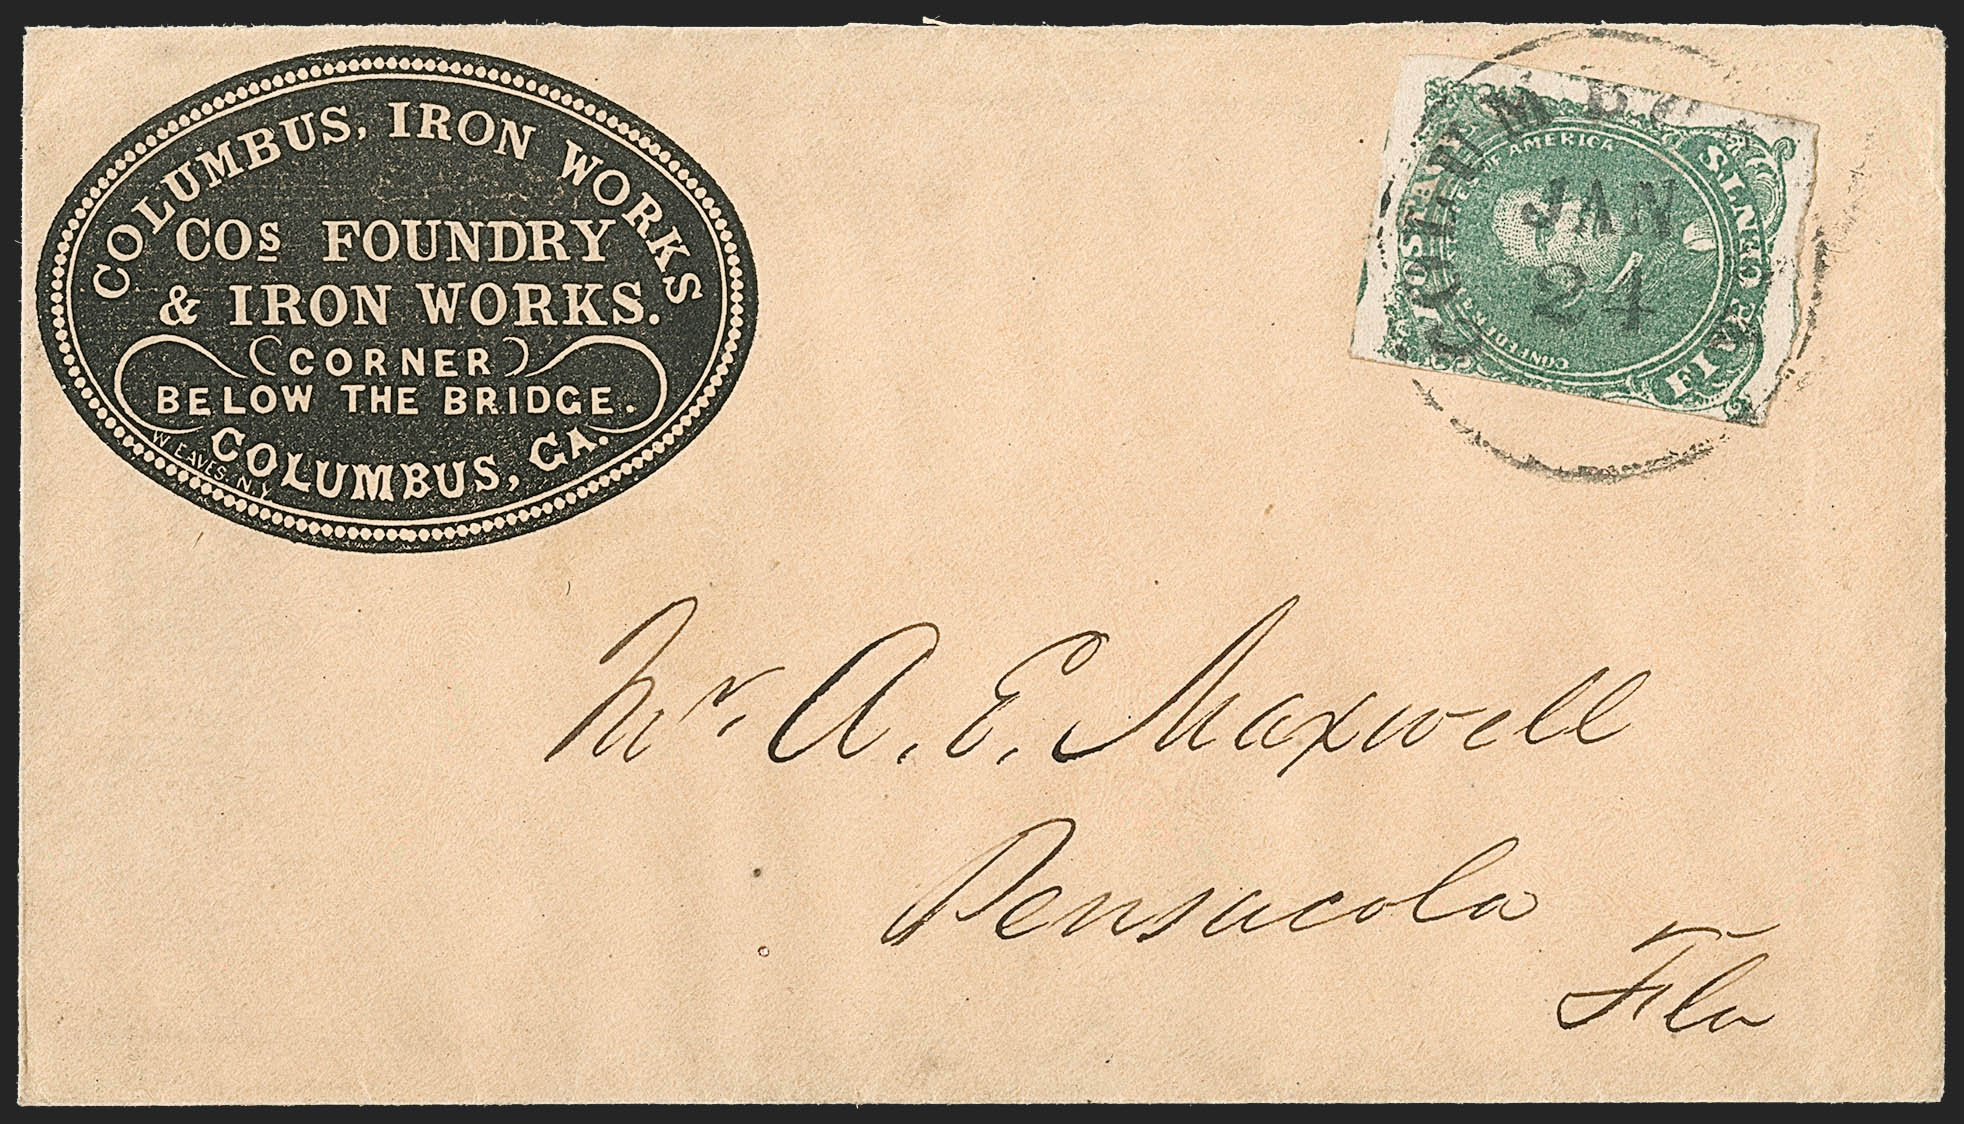 COLUMBUS, IRON WORKS
COs FOUNDRY
& IRON WORKS.
(CORNER)
BELOW THE BRIDGE.
COLUMBUS, GA.
W. EAVES. N.Y.
POSTAGE
OF AMERICA
CONFEDERATE
FIVE CENTS
JAN
24
Mr. A. E. Maxwell
Pensacola
Fla